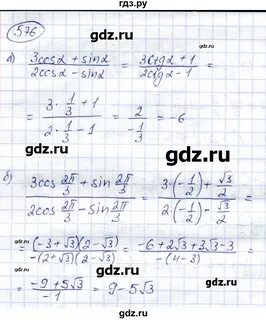 гдз.ру
576
gdz.ru
а) (3cosα + sinα)/(2cosα - sinα) = (3ctgα + 1)/(2ctgα - 1) =
= (3·1/3 + 1)/(2·1/3 - 1) = 2/(-1/3) = -6
б) (3cos 2π/3 + sin 2π/3)/(2cos 2π/3 - sin 2π/3) = (3·(-1/2) + √3/2)/(2·(-1/2) - √3/2) =
= (-3+√3)(2-√3)/(-(2+√3)(2-√3)) = (-6+2√3+3√3-3)/(-(4-3)) =
= (-9+5√3)/(-1) = 9-5√3